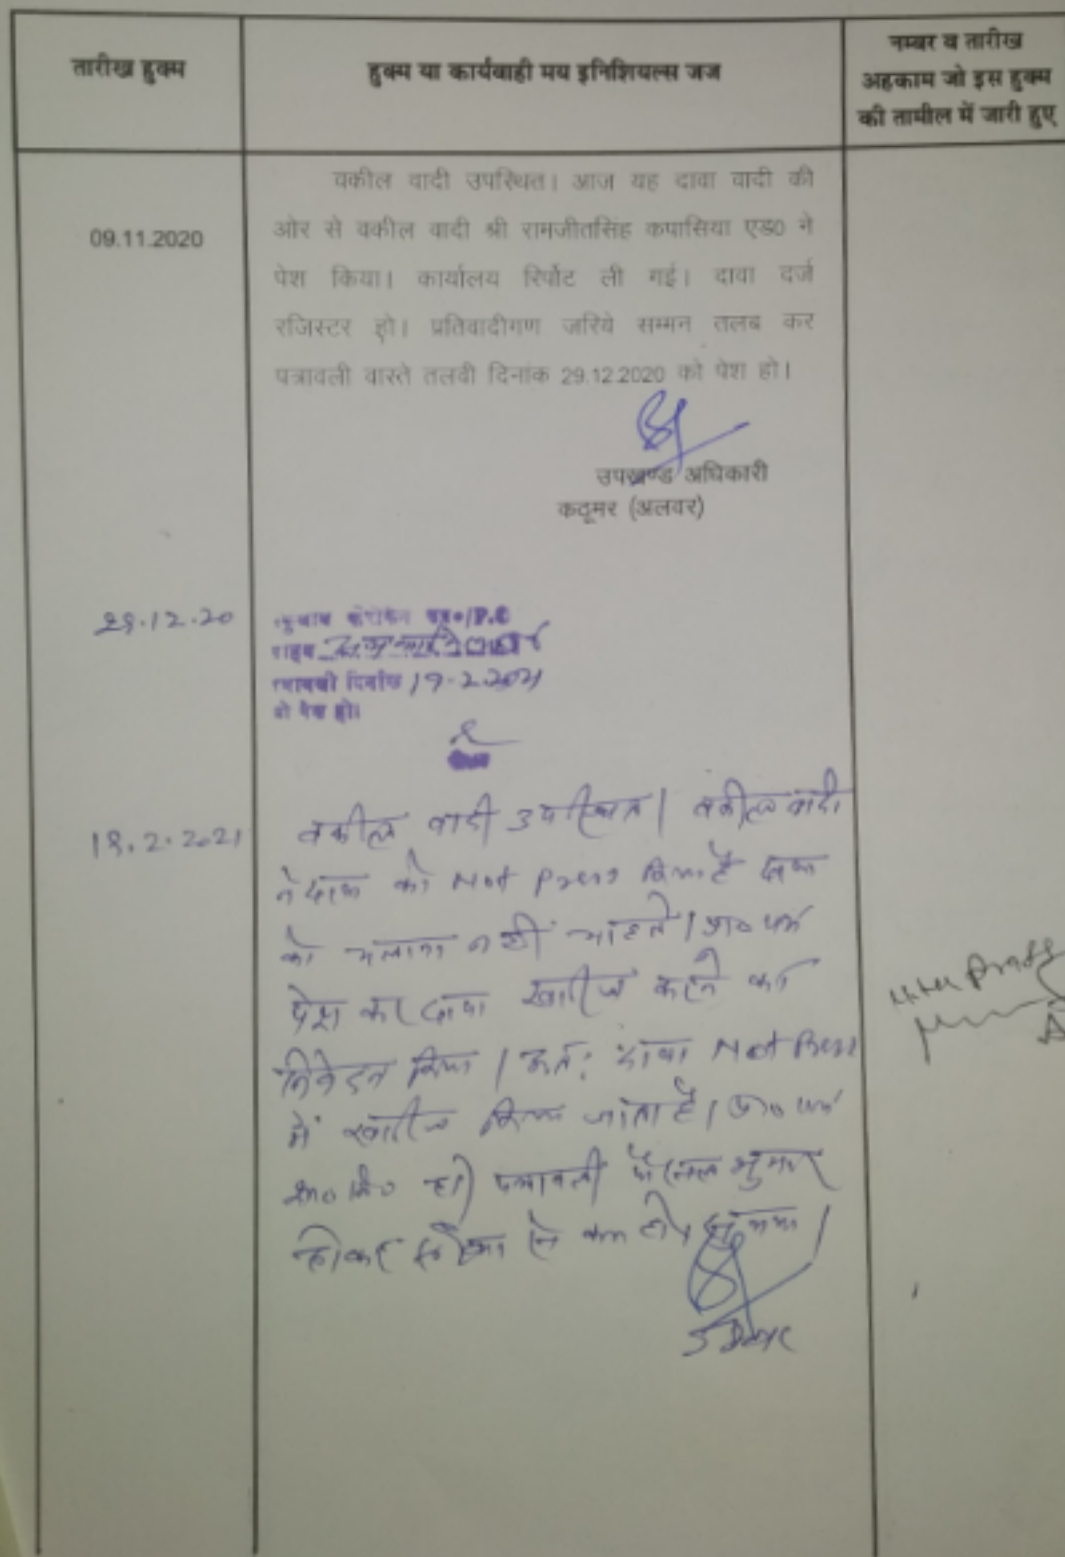 तारीख हुक्म
हुक्म या कार्यवाही मय इनिशियल्स जज
नम्बर व तारीख
अहकाम जो इस हुक्म
की तामील में जारी हुए
09.11.2020
वकील वादी उपस्थित। आज यह दावा वादी की
ओर से वकील वादी श्री रामजीतसिंह कपासिया एड० ने
पेश किया। कार्यालय रिर्पोट ली गई। दावा दर्ज
रजिस्टर हो। प्रतिवादीगण जरिये सम्मन तलब कर
पत्रावली वास्ते तलवी दिनांक 29.12.2020 को पेश हो।
उपखण्ड अधिकारी
कठूमर (अलवर)
29.12.20
दिनांक 19-2-2021
को पेश हो।
19.2.2021
वकील वादी उपस्थित। वकील वादी
ने दावा को Not Press किया है दावा
को चलाना नहीं चाहते। प्रा० पत्र
पेश कर दावा खारिज करने का
निवेदन किया। अतः दावा Not Press
में खारिज किया जाता है। प्रा० पत्र
शा० मि० हो। पत्रावली फैसल शुमार
होकर से कम हो।